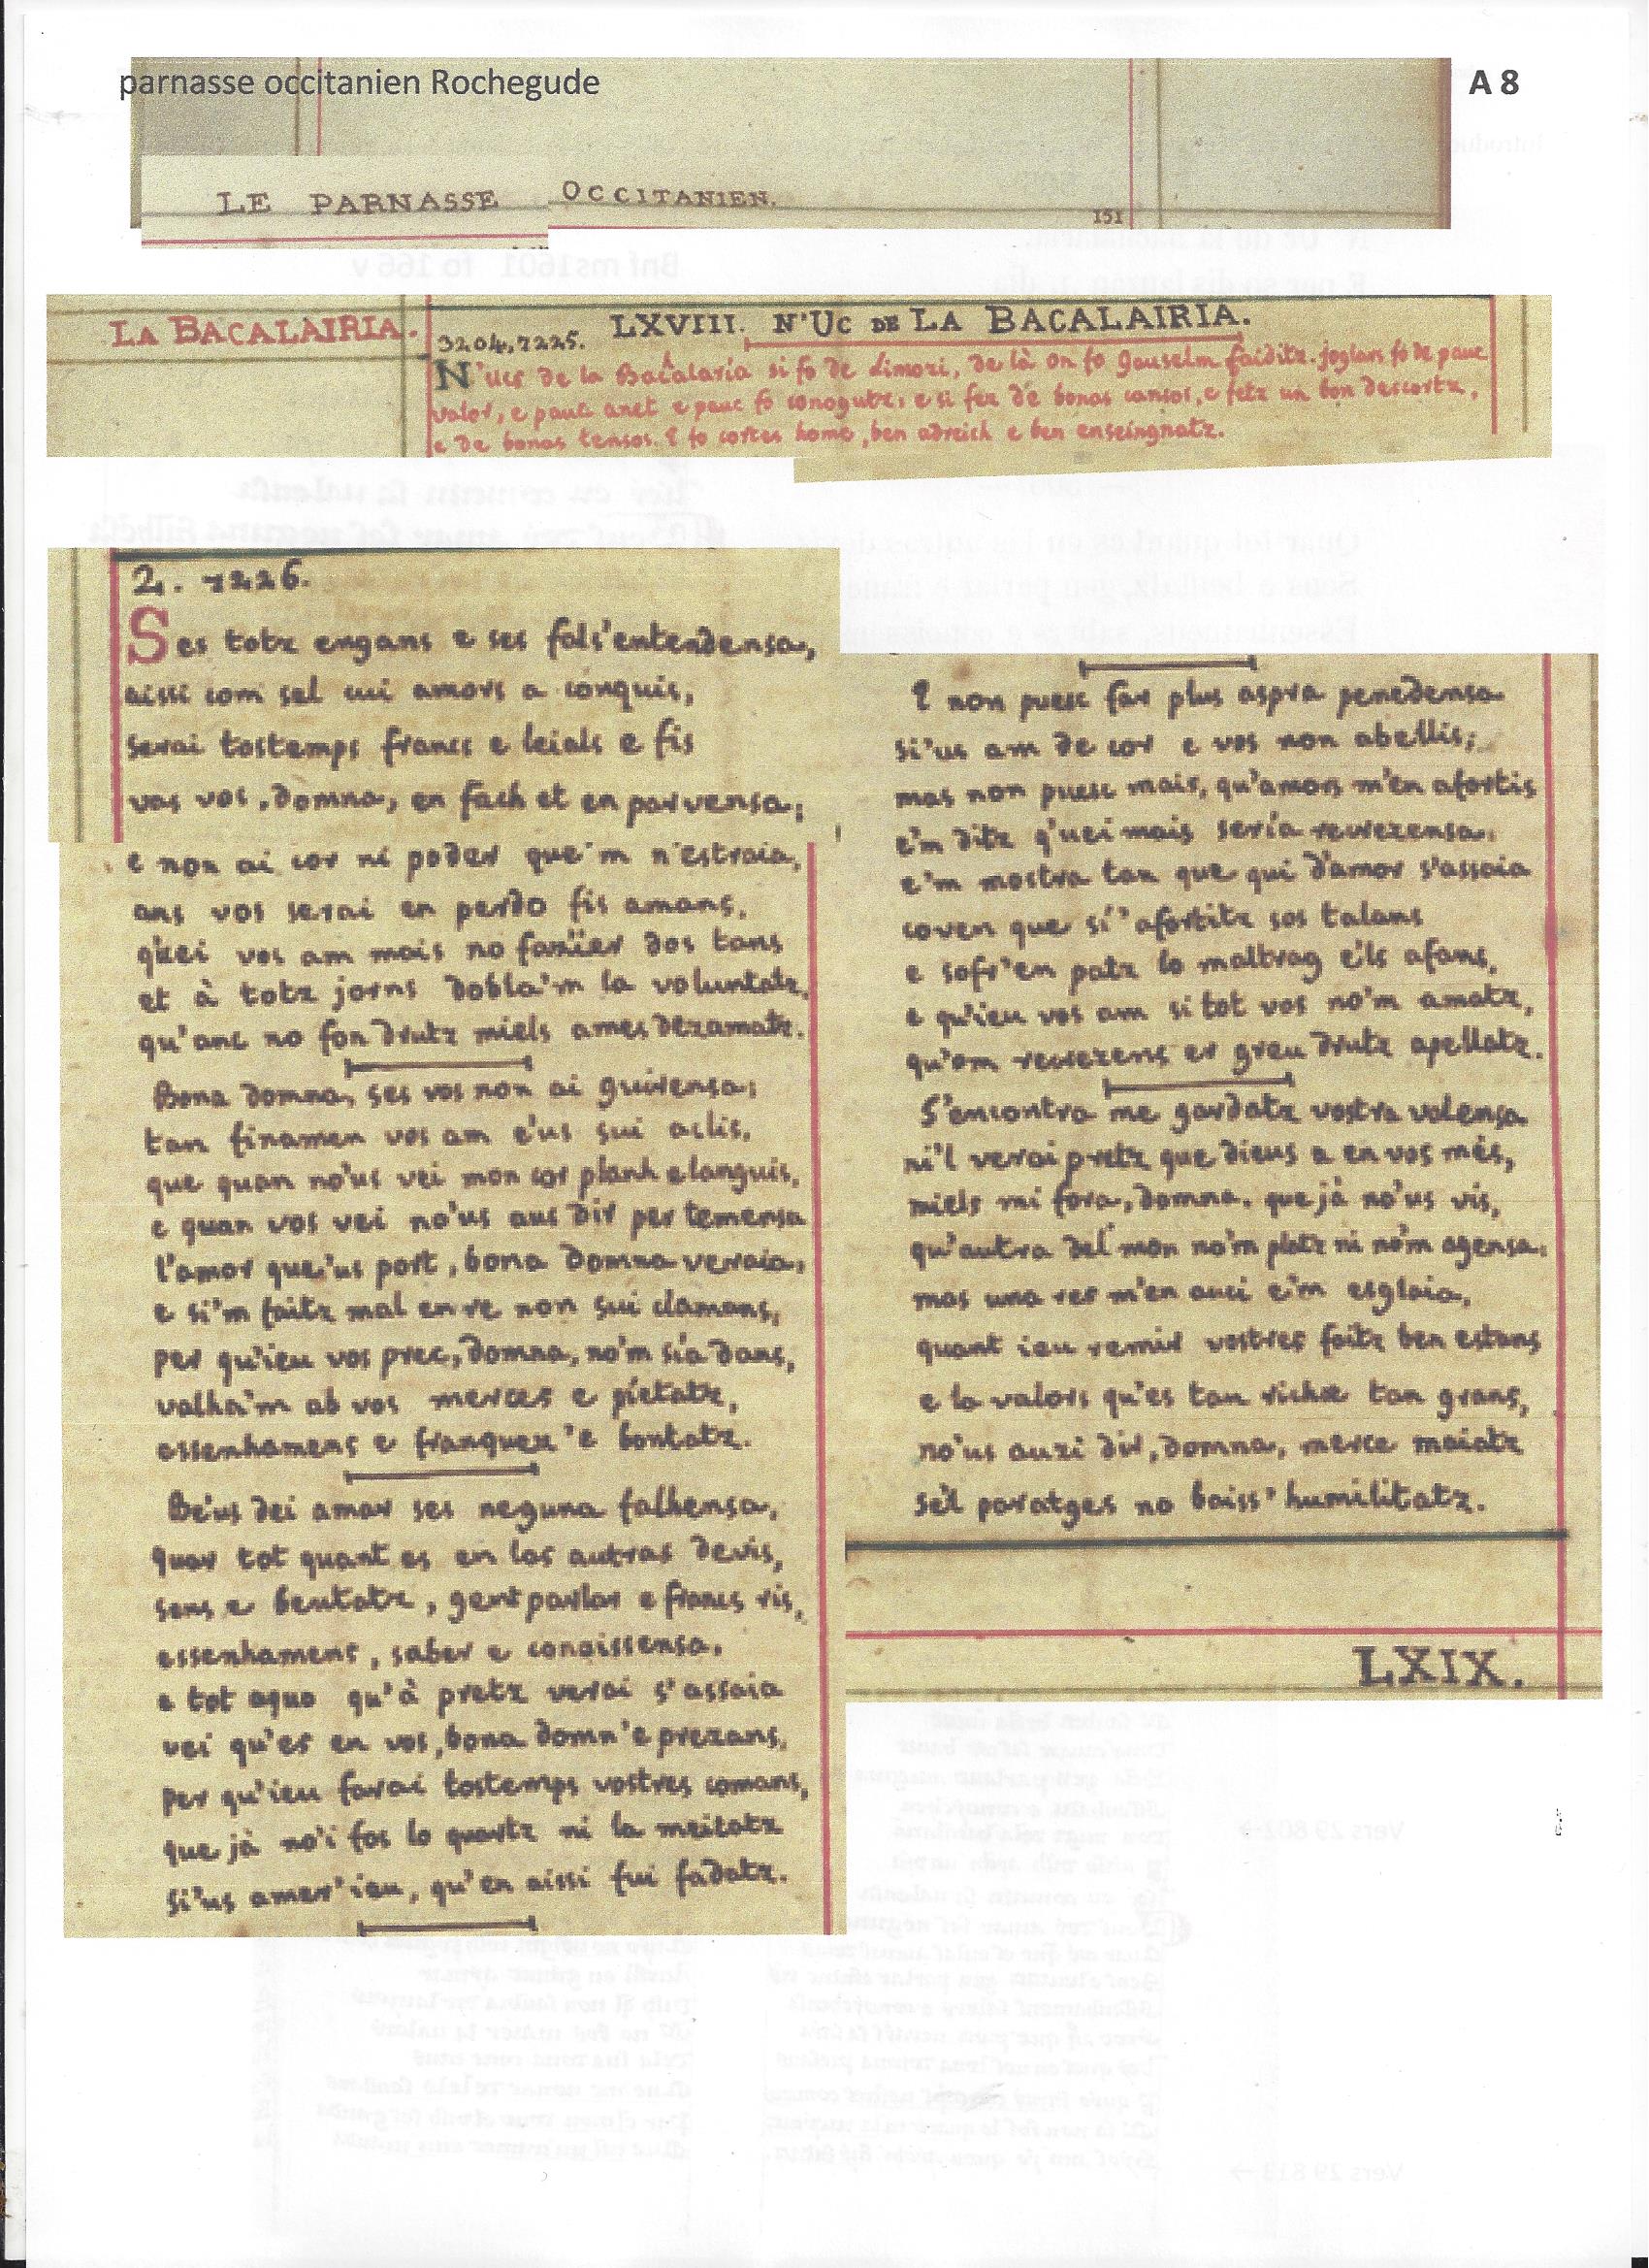 parnasse occitanien Rochegude
A 8
LE PARNASSE OCCITANIEN.
151
LA BACALAIRIA.
LXVIII. N'UC DE LA BACALAIRIA.
3204, 7225.
N'ucs de la Bacalaría si fo de Limozi, de là on fo Gauselm faiditz. joglars fo de pauc
valor, e pauc anet e pauc fo conogutz; e si fez de bonas cansos, e fetz un bon descortz,
e de bonas tensos. E fo cortes home, ben adreich e ben enseingnatz.
2. 7226.
Ses totz engans e ses fals'entendensa,
aissi com sel cui amors a conquis,
serai tostemps francs e leials e fis
vas vos, domna, en fach et en parvensa;
e non ai cor ni poder que'm n'estraia,
ans vos serai en perdo fis amans,
q'uei vos am mais no fazïer dos tans
et à totz jorns dobla'm la voluntatz,
qu'anc no fon drutz miels ames dezamatz.
Bona domna, ses vos non ai guirensa;
tan finamen vos am e'us sui aclis,
que quan no'us vei mon cor planh e languis,
e quan vos vei no'us aus dir per temensa
l'amor que'us port, bona domna veraia,
e si'm faitz mal en re non sui clamans,
per qu'ieu vos prec, domna, no'm sía dans,
valha'm ab vos merces e pietatz,
essenhamens e franquez'e bontatz.
Be'us dei amar ses neguna falhensa,
quar tot quant es en las autras devis,
sens e beutatz, gent parlar e francs ris,
essenhamens, saber e conoissensa,
e tot aquo qu'à pretz verai s'assaia
vei qu'es en vos, bona domn'e prezans,
per qu'ieu farai tostemps vostres comans,
que jà no'i fos lo quartz ni la meitatz
si'us amer'ieu, qu'en aissi fui fadatz.
E non puesc far plus aspra penedensa
si'us am de cor e vos non abellis;
mas non puesc mais, qu'amors m'en afortis
e'm ditz q'uei mais sería recrezensa,
e'm mostra tan que qui d'amor s'assaia
coven que si'afortitz sos talans
e sofr'en patz lo maltrag e'ls afans,
e qu'ieu vos am si tot vos no'm amatz,
qu'om recrezens er greu drutz apellatz.
S'encontra me gardatz vostra valensa
ni'l verai pretz que dieus a en vos més,
miels mi fora, domna, que jà no'us vis,
qu'autra del mon no'm platz ni no'm agensa;
mas una res m'en auci e'm esglaia,
quant ieu remir vostres faitz ben estans
e la valors qu'es tan richa e tan grans,
no'us auzi dir, domna, merce maiatz
se'l paratges no baiss'humilitatz.
LXIX.